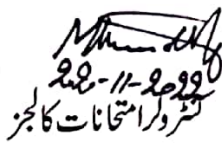 22-11-2022
کنٹرولر امتحانات کالجز